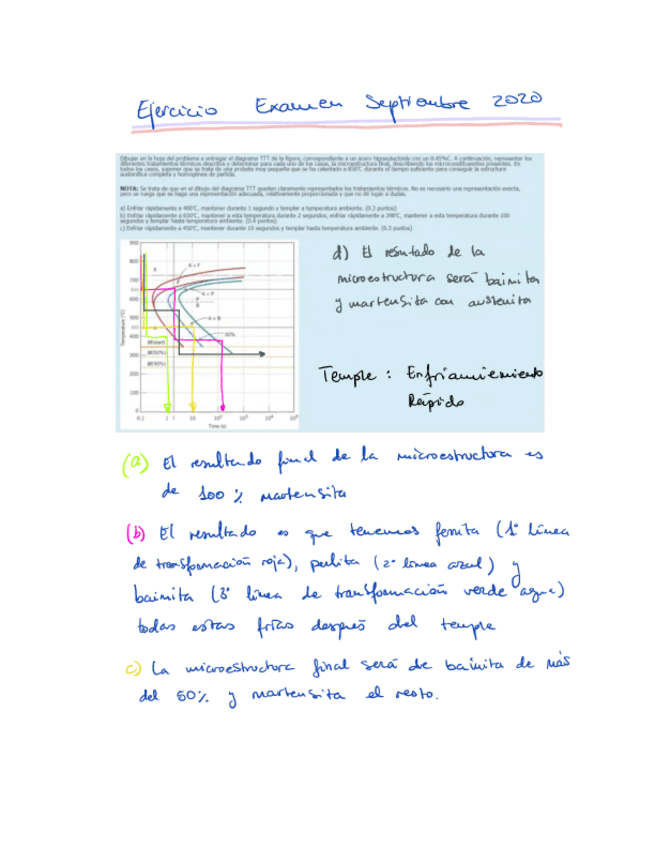 Ejercicio Examen Septiembre 2020
Dibujar en la hoja del problema a entregar el diagrama TTT de la figura, correspondiente a un acero hipoeutectoide con un 0.45%C. A continuación, representar los
diferentes tratamientos térmicos descritos y determinar para cada uno de los casos, la microestructura final, describiendo los microconstituyentes presentes. En
todos los casos, suponer que se trata de una probeta muy pequeña que se ha calentado a 850ºC durante el tiempo suficiente para conseguir la estructura
austenítica completa y homogénea de partida.
NOTA: Se trata de que en el dibujo del diagrama TTT queden claramente representados los tratamientos térmicos. No es necesario una representación exacta,
pero se ruega que se haga una representación adecuada, relativamente proporcionada y que no dé lugar a dudas.
a) Enfriar rápidamente a 400ºC, mantener durante 1 segundo y templar a temperatura ambiente. (0.3 puntos)
b) Enfriar rápidamente a 650ºC, mantener a esta temperatura durante 2 segundos, enfriar rápidamente a 398ºC, mantener a esta temperatura durante 100
segundos y templar hasta temperatura ambiente. (0.4 puntos)
c) Enfriar rápidamente a 450ºC, mantener durante 10 segundos y templar hasta temperatura ambiente. (0.3 puntos)
900
800
700
600
500
400
300
200
100
0
Temperatura (°C)
A
A + F
A + P
P
B
A + B
A
50%
M(start)
M(50%)
M(90%)
0.1 1 10 10² 10³ 10⁴ 10⁵
Time (s)
d) El resultado de la
microestructura será bainita
y martensita con austenita
Temple : Enfriamiemiento
Rápido
(a) El resultando final de la microestructura es
de 100 % martensita
(b) El resultado es que tenemos ferrita (1ª línea
de transformación roja), perlita (2ª línea azul) y
bainita (3ª línea de transformación verde agua)
todas estas frías después del temple
c) La microestructura final será de bainita de más
del 50% y martensita el resto.